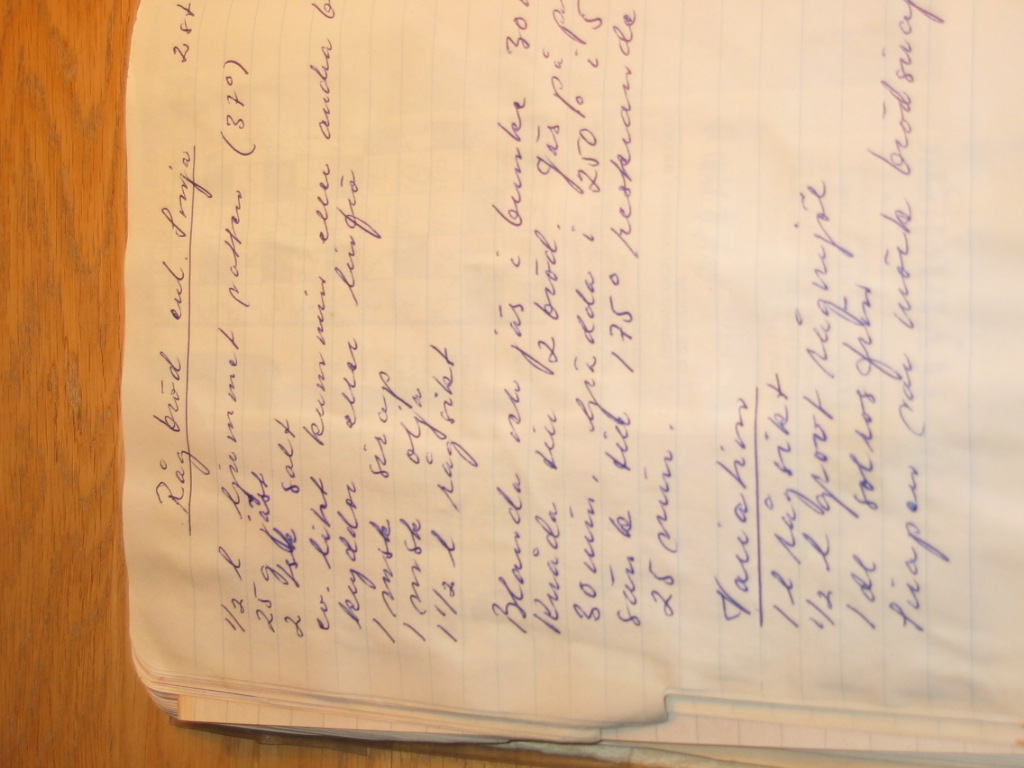 Råg bröd enl. Sonja 2 st
1/2 l ljummet vatten (37°)
25 g jäst
2 tsk salt
ev. lite kummin eller andra
kryddor eller linfrö
1 msk sirap
1 msk olja
1 1/2 l rågsikt
Blanda och jäs i bunke 30
Knåda till 2 bröd. Jäs på
30 min. Grädda i 250° i 5
sänk till 175° resterande
25 min.
Variation
1 l rågsikt
1/2 l grovt rågmjöl
1 dl solrosfrön
Sirapen kan mörk brödsirap